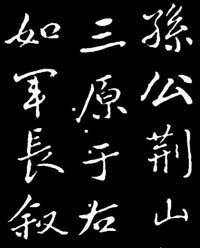 孫公荆山
三原于右
如军長叙